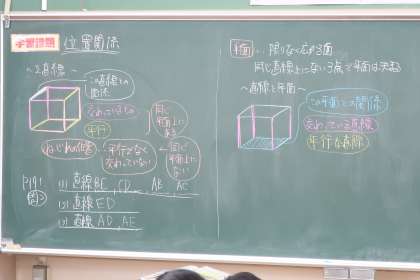 学習課題 位置関係
〜2直線〜
この直線との関係
交わっているもの
平行
同じ平面上にある
ねじれの位置
平行でなく交わっていない
同じ平面上にない
P191
(1) 直線BC, CD, AB, AC
(2) 直線ED
(3) 直線AD, AE
平面… 限りなく広がる面
同じ直線上にない3点で平面は決まる
〜直線と平面〜
この平面との関係
交わっている直線
平行な直線